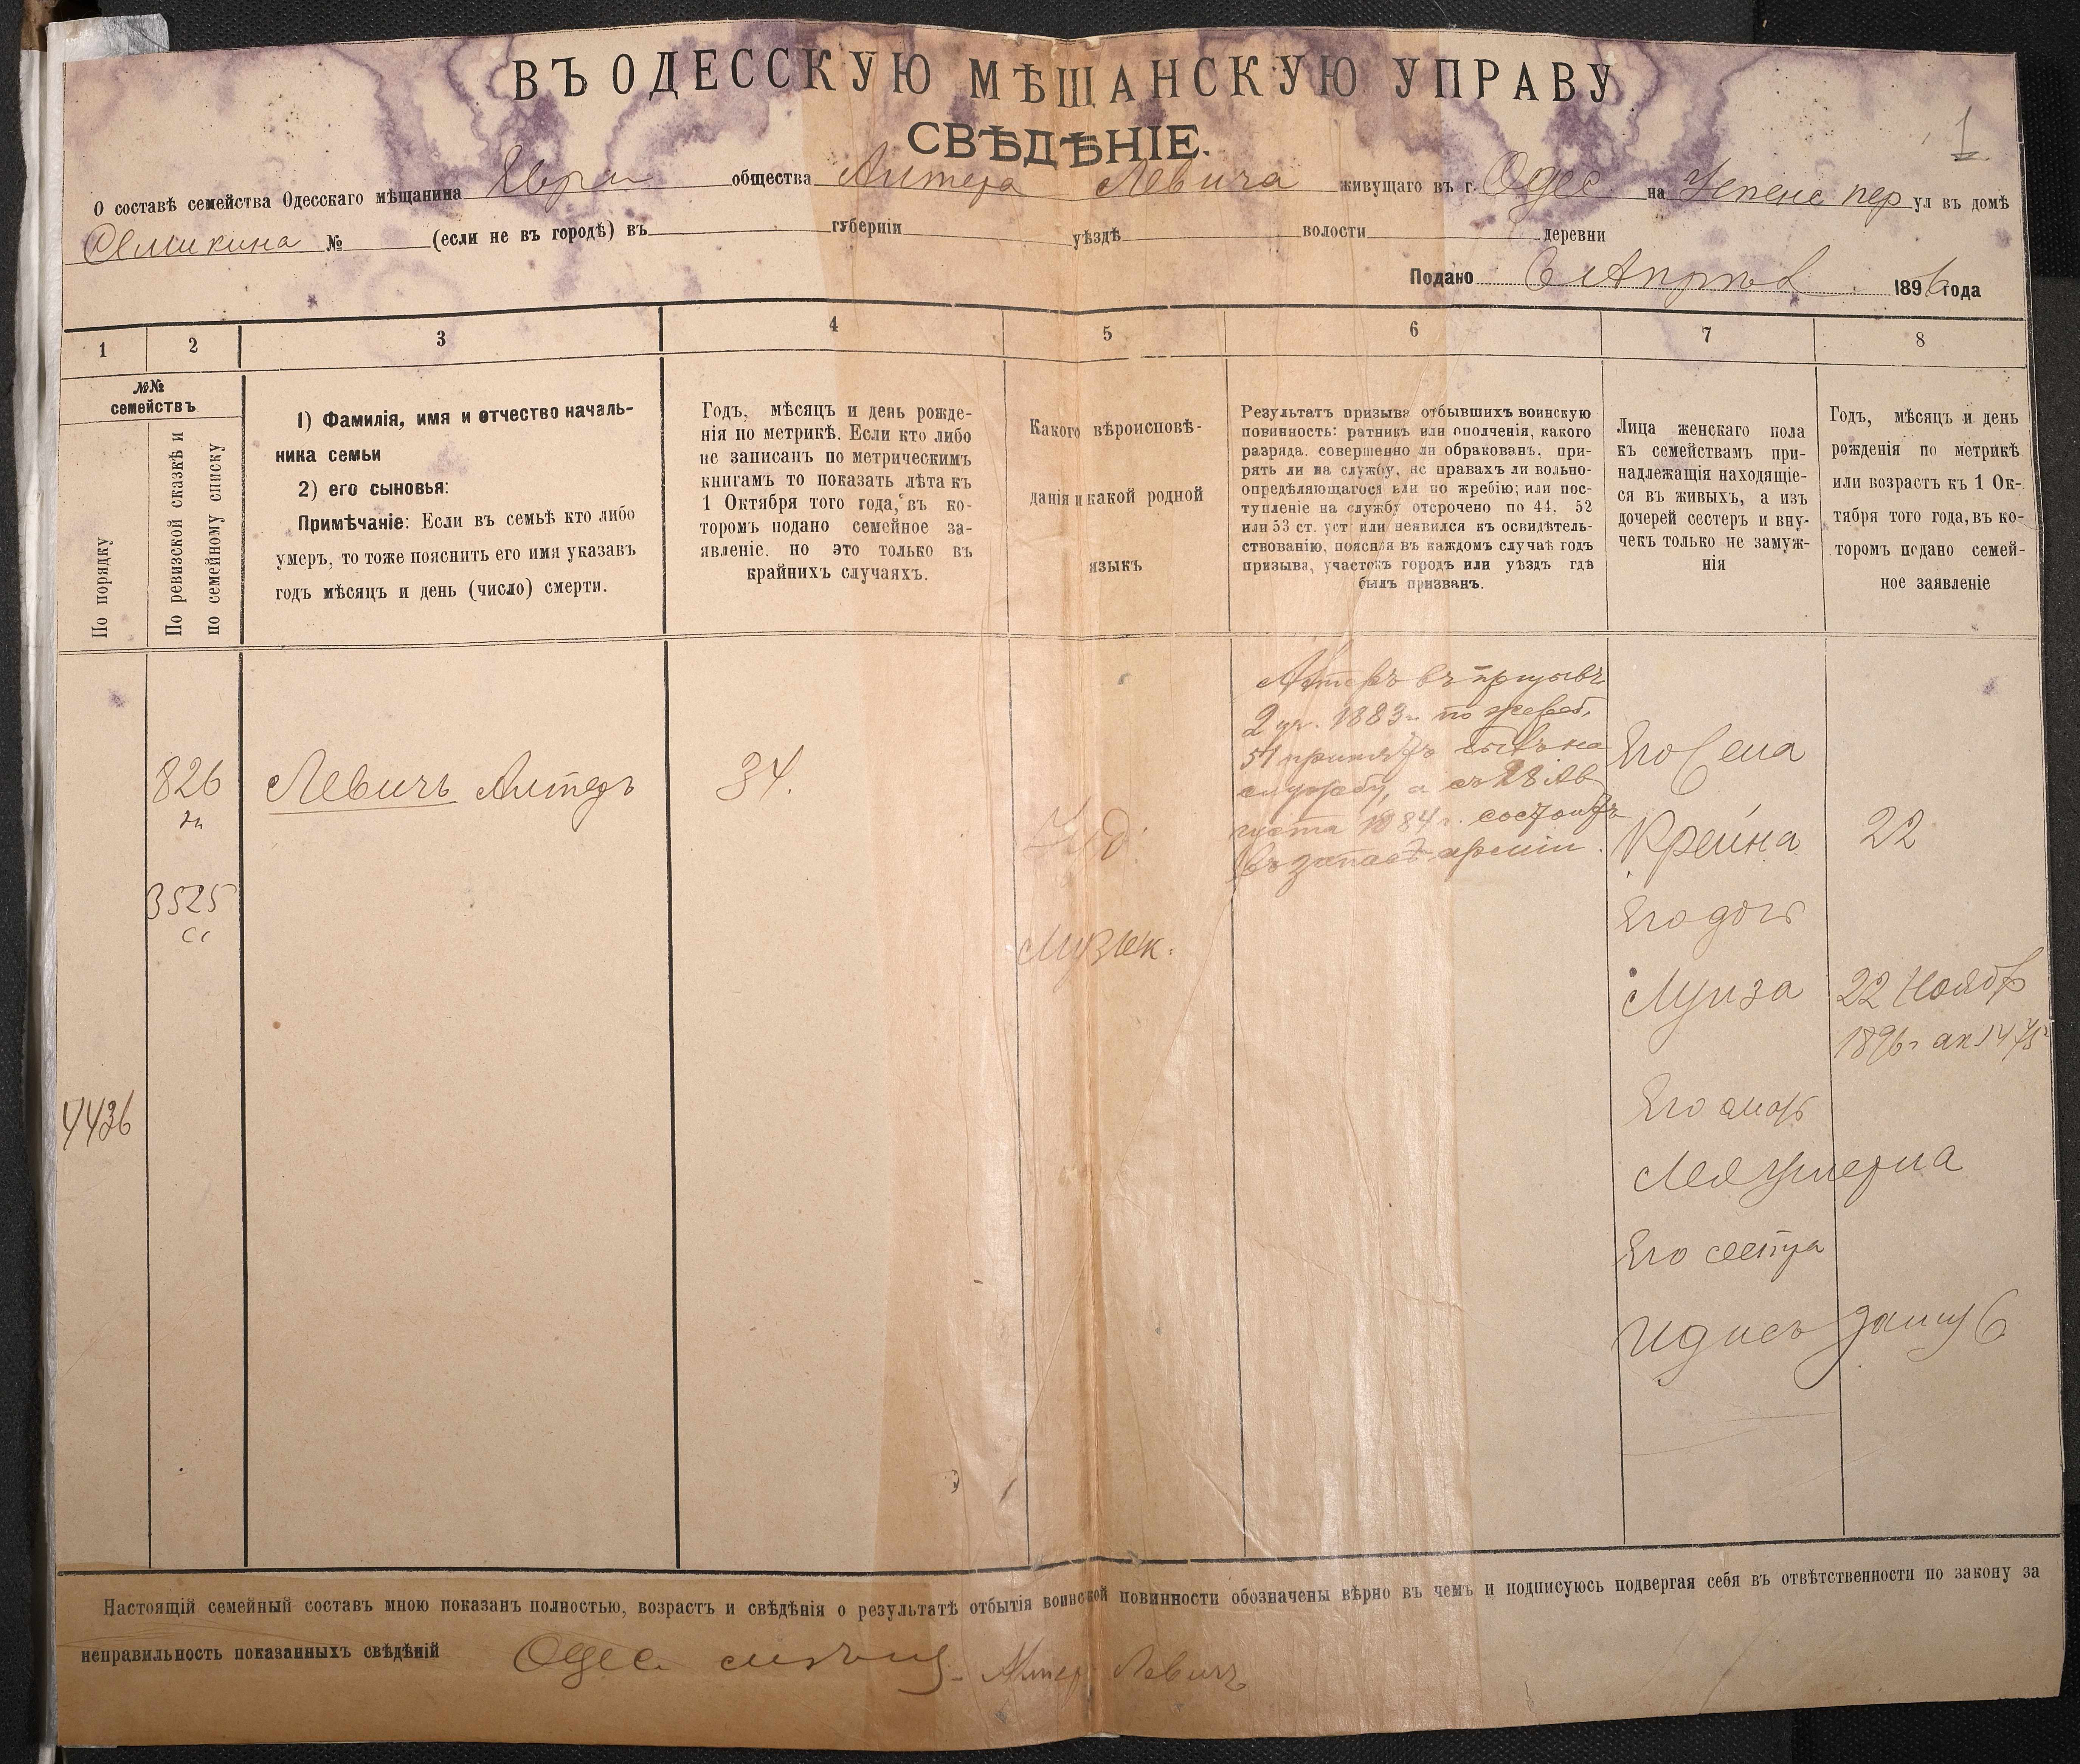 ВЪ ОДЕССКУЮ МѢЩАНСКУЮ УПРАВУ
СВѢДѢНІЕ.
1
О составѣ семейства Одесскаго мѣщанина Евр общества Алтера Левича живущаго въ г. Одес на Успенс пер ул въ домѣ
№ (если не въ городѣ) въ губерніи уѣздѣ волости деревни
Подано 6 Апрѣл 1896 года
1 2 3 4 5 6 7 8
№№ семействъ
По порядку
По ревизской сказкѣ и
по семейному списку
1) Фамилія, имя и отчество началь-
ника семьи
2) его сыновья:
Примѣчаніе: Если въ семьѣ кто либо
умеръ, то тоже пояснить его имя указавъ
годъ мѣсяцъ и день (число) смерти.
Годъ, мѣсяцъ и день рожде-
нія по метрикѣ. Если кто либо
не записанъ по метрическимъ
книгамъ то показать лѣта къ
1 Октября того года, въ ко-
торомъ подано семейное за-
явленіе. но это только въ
крайнихъ случаяхъ.
Какого вѣроисповѣ-
данія и какой родной
языкъ
Результатъ призыва отбывшихъ воинскую
повинность: ратникъ или ополченія, какого
разряда. совершенно ли обракованъ, при-
рять ли на службу, не правахъ ли вольно-
опредѣляющагося или по жребію; или пос-
тупленіе на службу отсрочено по 44. 52
или 53 ст. уст или неявился къ освидѣтель-
ствованію, поясняя въ каждомъ случаѣ годъ
призыва, участокъ городъ или уѣздъ гдѣ
былъ призванъ.
Лица женскаго пола
къ семействамъ при-
надлежащія находящіе-
ся въ живыхъ, а изъ
дочерей сестеръ и вну-
чекъ только не замуж-
нія
Годъ, мѣсяцъ и день
рожденія по метрикѣ
или возрастъ къ 1 Ок-
тября того года, въ ко-
торомъ подано семей-
ное заявленіе
4436
826
3525
Левичъ Алтеръ
34.
Іуд.
Музык.
Алтеръ въ призывъ
2 уч. 1883 г. по жереб.
51 принятъ былъ на
службу, а съ 28 Ав
густа 1884 г. состоитъ
въ запасѣ арміи.
Его жена
Крейна 22
Его дочь
Луиза 22 Ноябр
1896 г ак 1475
Его мать
Лея умерла
Его сестра
Идисъ замуж
Настоящій семейный составъ мною показанъ полностью, возрастъ и свѣдѣнія о результатѣ отбытія воинской повинности обозначены вѣрно въ чемъ и подписуюсь подвергая себя въ отвѣтственности по закону за
неправильность показанныхъ свѣдѣній Одес. мѣщ. Алтер Левичъ